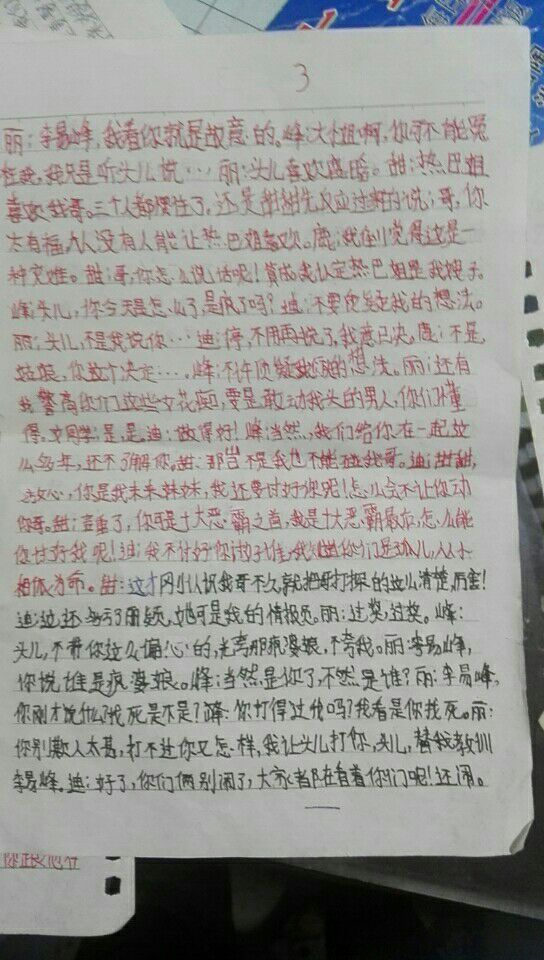 3
丽：李易峰，我看你就是故意的。峰：大姐啊，你可不能冤
枉我，我只是听头儿说…丽：头儿喜欢 甜：热巴姐
喜欢我哥。三个人都愣住了，还是甜甜先反应过来的说：哥，你
太有福，人没有人能让热巴姐喜欢。鹿：我在川觉得这是一
种灾难。甜：哥，你怎么说话呢！算我认定热巴姐是我嫂子。
峰：头儿，你今天是怎么了，是疯了吗？迪：不要质疑我的想法。
丽：头儿，不是我说你…迪：停，不用再说了，我意已决。鹿：不是，
姑娘，你这个决定…。峰：不许质疑 的想法。丽：还有
我警高你们这些女花痴，要是敢动我头的男人，你们懂
得。文同学：是，是。迪：做得好！峰：当然，我们给你在一起这
么多年，还不了解你。甜：那岂不是我也不能碰我哥。迪：甜甜，
放心，你是我未来妹妹，我还要讨好你呢！怎么会不让你动
你哥。甜：言重了，你可是十大恶霸之首，我是十大恶霸最后，怎么能
你讨好我呢！迪：我不讨好你讨好谁，我 你们是孤儿，人人
相依为命。甜：这才刚刚认识我哥不久，就把哥打探的这么清楚，厉害！
迪：这还 了丽颖，她可是我的情报员。丽：过奖，过奖。峰：
头儿，不带你这么偏心的，光夸那疯婆娘，不夸我。丽：李易峰，
你说谁是疯婆娘。峰：当然是你了，不然是谁？丽：李易峰，
你刚才说什么？找死是不是？峰：你打得过我吗？我看是你找死。丽：
你别欺人太甚，打不过你又怎样，我让头儿打你，头儿，替我教训
李易峰。迪：好了，你们俩别闹了，大家都在看着你们呢！还闹。
你跟他在